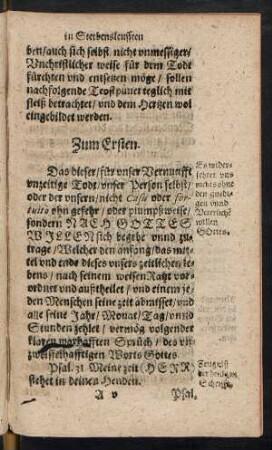 in Sterbensleufften
ben/auch sich selbst nicht vnmessiger/
Vnchristlicher weise für dem Todt
fürchten und entsetzen möge/ sollen
nachfolgende Trostpunct teglich mit
fleiß betrachtet/ vnd dem Hertzen wol
eingebildet werden.
Zum Ersten.
Das dieser/ für vnser Vernunfft
vnzeitige Todt/ vnser Person selbst/
oder der vnsern/ nicht Casu oder for-
tuito ohn gefehr/ oder plumpsweise/
sondern NACH GOTTES
WILLEN sich begebe vnnd zu-
trage/ Welcher den anfang/ das mit-
tel vnd ende dieses vnsers zeitlichen le-
bens/ nach seinem weisen Raht vor-
ordnet vnd außtheilet/ vnd einem je-
den Menschen seine zeit abmisset/ vnd
alle seine Jahr/ Monat/ Tag/ vnd
Stunden zehlet/ vermög volgender
klaren warhafften Sprüch/ des vn-
zweiffelhafftigen Worts Gottes.
Psal. 31 Meine zeit (HERR)
stehet in deinen Henden.
A v
Psal.
Es wider-
fehret vns
nichts ohne
den gnedi-
gen vnnd
Veterliche
willen
Gottes.
Zeugniß
der heiligen
Schrifft.